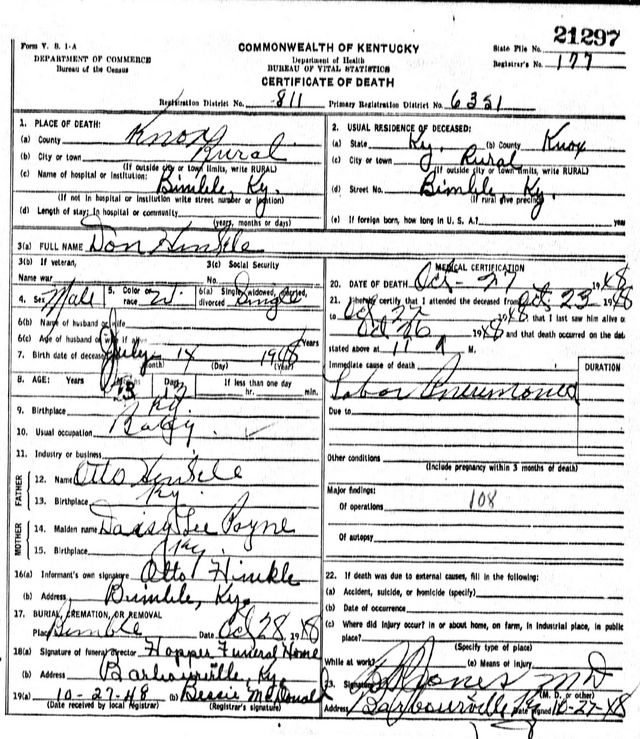 21297
Form V. S. 1-A
COMMONWEALTH OF KENTUCKY
State File No.
DEPARTMENT OF COMMERCE
Department of Health
Bureau of the Census
BUREAU OF VITAL STATISTICS
Registrar's No. 177
CERTIFICATE OF DEATH
Registration District No. 811 Primary Registration District No. 6351
1. PLACE OF DEATH:
(a) County Knox
(b) City or town Rural
(If outside city or town limits, write RURAL)
(c) Name of hospital or institution: Bimble, Ky.
(If not in hospital or institution write street number or location)
(d) Length of stay: In hospital or community
(years, months or days)
2. USUAL RESIDENCE OF DECEASED:
(a) State Ky. (b) County Knox
(c) City or town Rural
(If outside city or town limits, write RURAL)
(d) Street No. Bimble, Ky.
(If rural give precinct)
(e) If foreign born, how long in U. S. A.? years
3(a) FULL NAME Don Hinkle
3(b) If veteran, 3(c) Social Security
Name war No.
4. Sex Male 5. Color or race W. 6(a) Single, widowed, married, divorced Single
6(b) Name of husband or wife
6(c) Age of husband or wife if alive Years
7. Birth date of deceased July 14 1948
(Month) (Day) (Year)
8. AGE: Years 3 Days 13 If less than one day
hr. min.
9. Birthplace Ky.
10. Usual occupation Baby.
11. Industry or business
FATHER
12. Name Otto Hinkle
13. Birthplace Ky.
MOTHER
14. Maiden name Daisy Lee Payne
15. Birthplace Ky.
16(a) Informant's own signature Otto Hinkle
(b) Address Bimble, Ky.
17. BURIAL, CREMATION, OR REMOVAL
Place Bimble Date Oct 28, 1948
18(a) Signature of funeral director Hopper Funeral Home
(b) Address Barbourville, Ky.
19(a) 10-27-48 (b) Bessie McDonald
(Date received by local registrar) (Registrar's signature)
MEDICAL CERTIFICATION
20. DATE OF DEATH Oct - 27 1948
21. I hereby certify that I attended the deceased from Oct 23 - 1948
to Oct 27 1948 that I last saw him alive on
Oct 26 1948 and that death occurred on the date
stated above at 11 A M.
Immediate cause of death DURATION
Lobar Pneumonia
Due to
Other conditions
(Include pregnancy within 3 months of death)
Major findings:
Of operations 108
Of autopsy
22. If death was due to external causes, fill in the following:
(a) Accident, suicide, or homicide (specify)
(b) Date of occurrence
(c) Where did injury occur? in or about home, on farm, in industrial place, in public
place?
(Specify type of place)
While at work? (e) Means of injury
23. Signature Jones MD
(M. D. or other)
Address Barbourville Ky Date signed 10-27-48